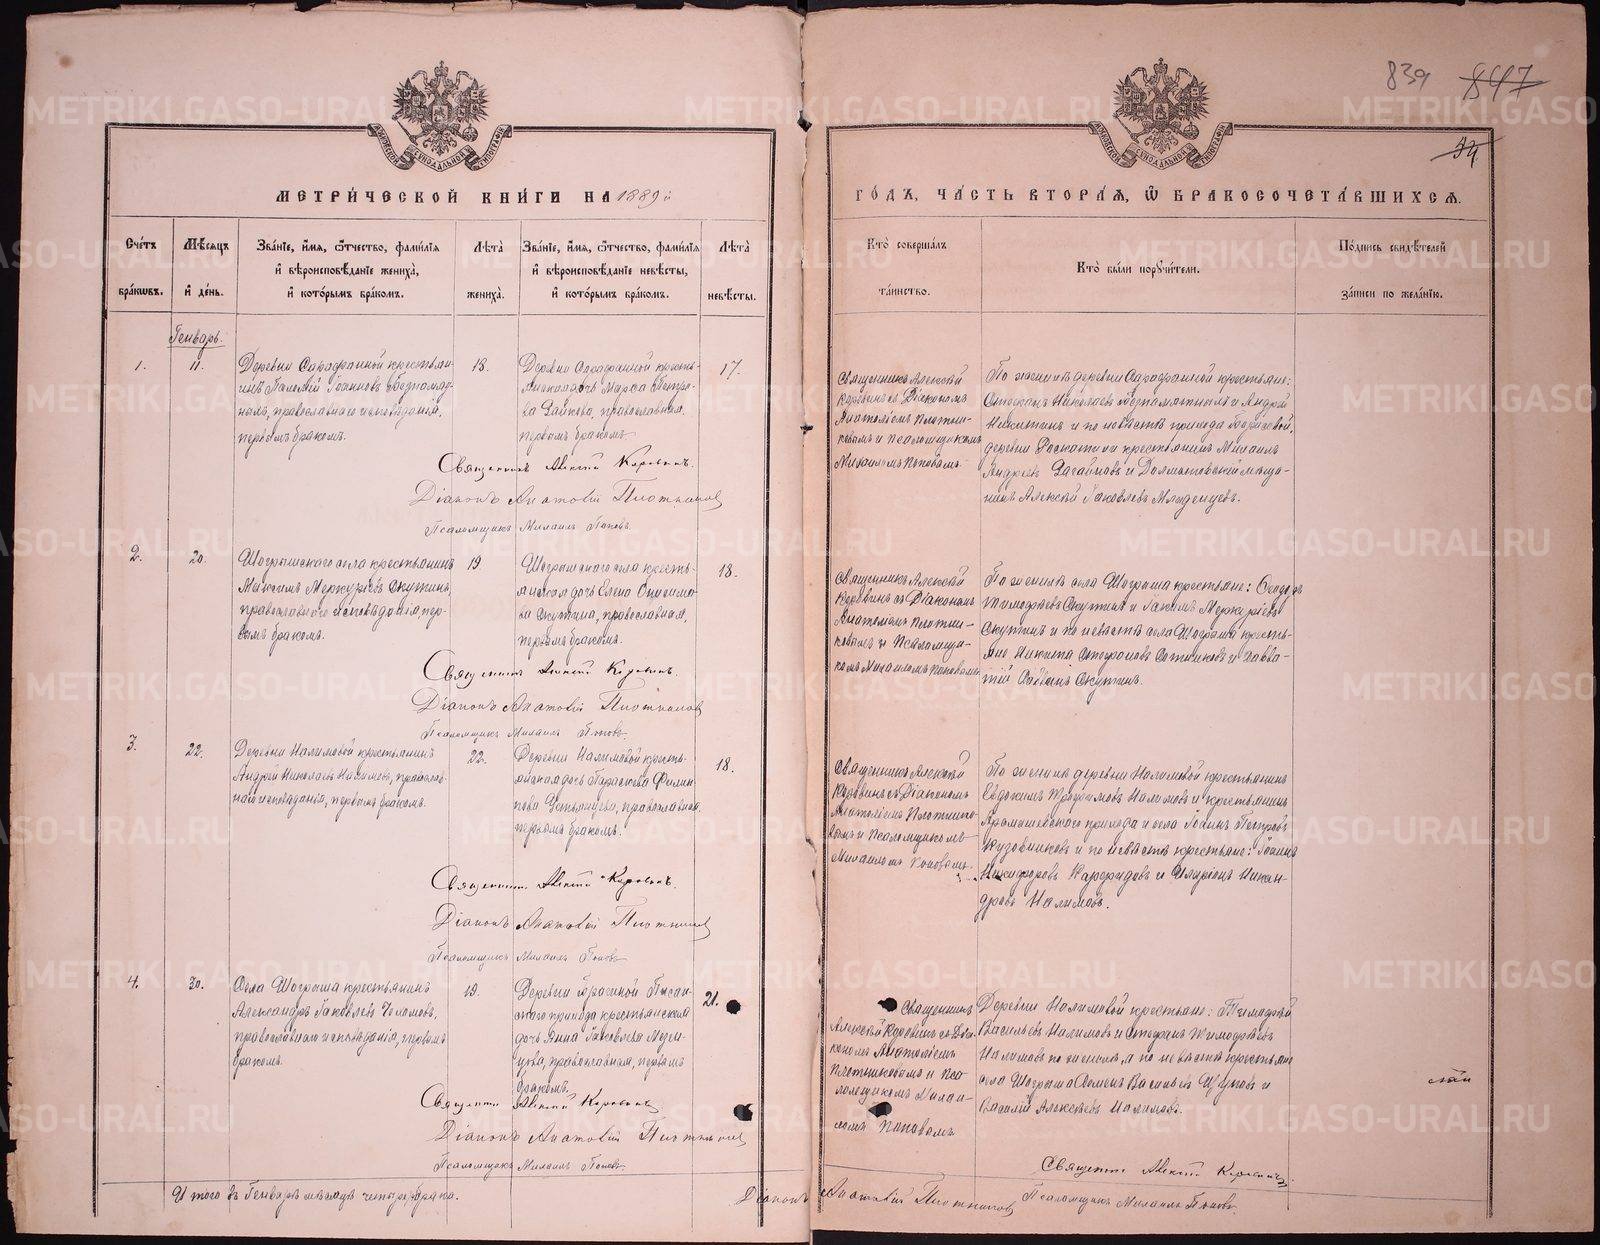 839 847
34
МОСКОВСКОЙ СУНОДАЛЬНОЙ ТИПОГРАФІИ
МОСКОВСКОЙ СУНОДАЛЬНОЙ ТИПОГРАФІИ
МЕТРИ́ЧЕСКОЙ КНИ́ГИ НА 1889й
ГО́ДЪ, ЧА́СТЬ ВТОРА́Я, Ѿ БРАКОСОЧЕТА́ВШИХСЯ.
Сче́тъ бра́кωвъ.
Мѣ́сяцъ и҆ де́нь.
Зва́нїе, и҆́мя, ѻ҆́тчество, фами́лїя и҆ вѣроисповѣ́данїе жениха̀, и҆ кото́рымъ бра́комъ.
Лѣ́та жениха̀.
Зва́нїе, и҆́мя, ѻ҆́тчество, фами́лїя и҆ вѣроисповѣ́данїе невѣ́сты, и҆ кото́рымъ бра́комъ.
Лѣ́та невѣ́сты.
Кто̀ соверша́лъ та́инство.
Кто̀ бы́ли порꙋчи́тели.
По́дпись свидѣ́телей за́писи по жела́нїю.
Генварь.
1.
11.
Деревни Сарафанной крестья-
нинъ
Іоанновъ
православнаго исповѣданія,
первымъ бракомъ.
18.
Деревни Сарафанной кресть-
янская дочь Марѳа Петро-
ва православная,
первымъ бракомъ.
17.
Священникъ Алексій
Коровинъ съ Діакономъ
Анатоліемъ Плотни-
ковымъ и Псаломщикомъ
Михаиломъ Поповымъ.
По женихѣ деревни Сарафанной крестьяне:
Стефанъ Николаевъ и Андрей
Никитинъ и по невѣстѣ прихода
деревни крестьянинъ Михаилъ
Андреевъ и Далматовскій мѣща-
нинъ Алексѣй Іаковлевъ Младенцевъ.
Священникъ Алексій Коровинъ.
Діаконъ Анатолій Плотниковъ
Псаломщикъ Михаилъ Поповъ.
2.
20.
Шогришскаго села крестьянинъ
Максимъ Меркурьевъ Скутинъ,
православнаго исповѣданія, пер-
вымъ бракомъ.
19
Шогришскаго села кресть-
янская дочь Елена Онисимо-
ва Скутина, православная,
первымъ бракомъ.
18.
Священникъ Алексій
Коровинъ съ Діакономъ
Анатоліемъ Плотни-
ковымъ и Псаломщи-
комъ Михаиломъ Поповымъ
По женихѣ села Шогриша крестьяне:
Тимоѳеевъ Скутинъ и Іакимъ Меркуріевъ
Скутинъ и по невѣстѣ села Шогриша кресть-
яне Никита Стефановъ Сотниковъ и Савва-
тій Скутинъ.
Священникъ Алексій Коровинъ.
Діаконъ Анатолій Плотниковъ
Псаломщикъ Михаилъ Поповъ.
3.
22.
Деревни Налимовой крестьянинъ
Андрей Николаевъ Налимовъ, православ-
наго исповѣданія, первымъ бракомъ.
22.
Деревни Налимовой кресть-
янская дочь Параскева Филип-
пова Устьянцева, православная,
первымъ бракомъ.
18.
Священникъ Алексій
Коровинъ съ Діакономъ
Анатоліемъ Плотнико-
вымъ и Псаломщикомъ
Михаиломъ Поповымъ.
По женихѣ деревни Налимовой крестьянинъ
Евдокимъ Трофимовъ Налимовъ и крестьянинъ
Арамашевскаго прихода и села Іоаннъ Петровъ
Кузовниковъ и по невѣстѣ крестьяне: Іоаннъ
Никифоровъ и Иларіонъ Никан-
дровъ Налимовъ.
Священникъ Алексій Коровинъ.
Діаконъ Анатолій Плотниковъ
Псаломщикъ Михаилъ Поповъ
4.
30.
Села Шогриша крестьянинъ
Александръ Іаковлевъ
православнаго исповѣданія, первымъ
бракомъ.
19.
Деревни Писан-
скаго прихода крестьянская
дочь Анна Іаковлева
православная, первымъ
бракомъ.
21.
Священникъ
Алексій Коровинъ съ Діа-
кономъ Анатоліемъ
Плотниковымъ и Пса-
ломщикомъ Михаи-
ломъ Поповымъ
Деревни Налимовой крестьяне: Тимоѳей
Васильевъ Налимовъ и Стефанъ Тимоѳеевъ
Налимовъ по женихѣ, а по невѣстѣ крестьяне
села Шогриша Васильевъ и
Василій Алексѣевъ Налимовъ.
Священникъ Алексій Коровинъ
Діаконъ Анатолій Плотниковъ
Псаломщикъ Михаилъ Поповъ.
Итого въ Генварѣ мѣсяцѣ четыре брака.
Священникъ Алексій Коровинъ.
Діаконъ Анатолій Плотниковъ
Псаломщикъ Михаилъ Поповъ.
METRIKI.GASO-URAL.RU